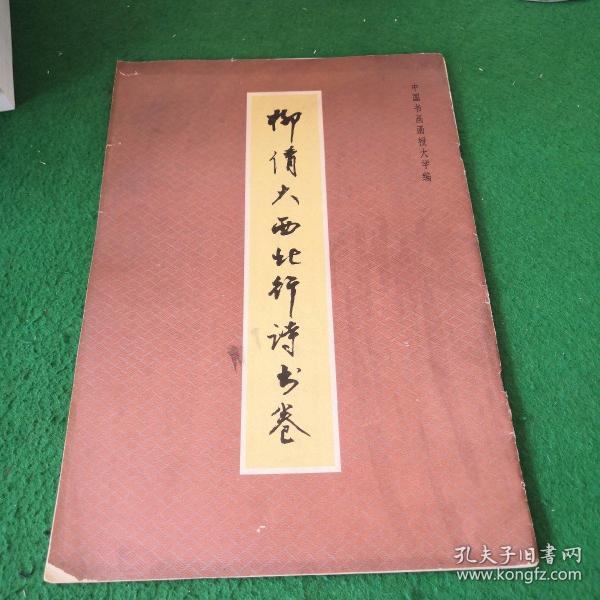 中国书画函授大学编
柳倩大西北行诗书卷
孔夫子旧书网
www.kongfz.com